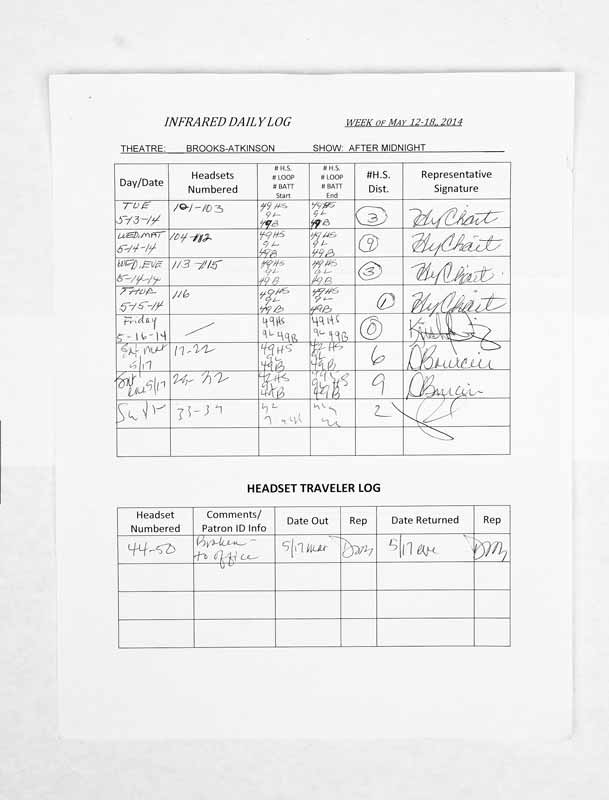 INFRARED DAILY LOG WEEK OF MAY 12-18,, 2014
THEATRE: BROOKS-ATKINSON SHOW: AFTER MIDNIGHT
Day/Date Headsets Numbered # H.S. # LOOP # BATT Start # H.S. # LOOP # BATT End #H.S. Dist. Representative Signature
TUE 5-13-14 101-103 49 HS 9L 49B 49 HS 9L 49B 3 HyChart
WED.MAT 5-14-14 104-112 49HS 9L 49B 49HS 9L 49B 9 HyChart
WED.EVE 5-14-14 113-115 49HS 9L 49B 49HS 9L 49B 3 HyChart
THUR 5-15-14 116 49HS 9L 49B 49HS 9L 49B 1 HyChart
Friday 5-16-14 / 49HS 9L 49B 49HS 9L 49B 0
Sat mat 5/17 17-22 49HS 9L 49B 42HS 9L 49B 6 DBourcier
Sat eve 5/17 42HS 9L 9L 9 DBourcier
Sun 33-34 2
HEADSET TRAVELER LOG
Headset Numbered Comments/ Patron ID Info Date Out Rep Date Returned Rep
44-50 Broken - to office 5/17 mat 5/17 eve